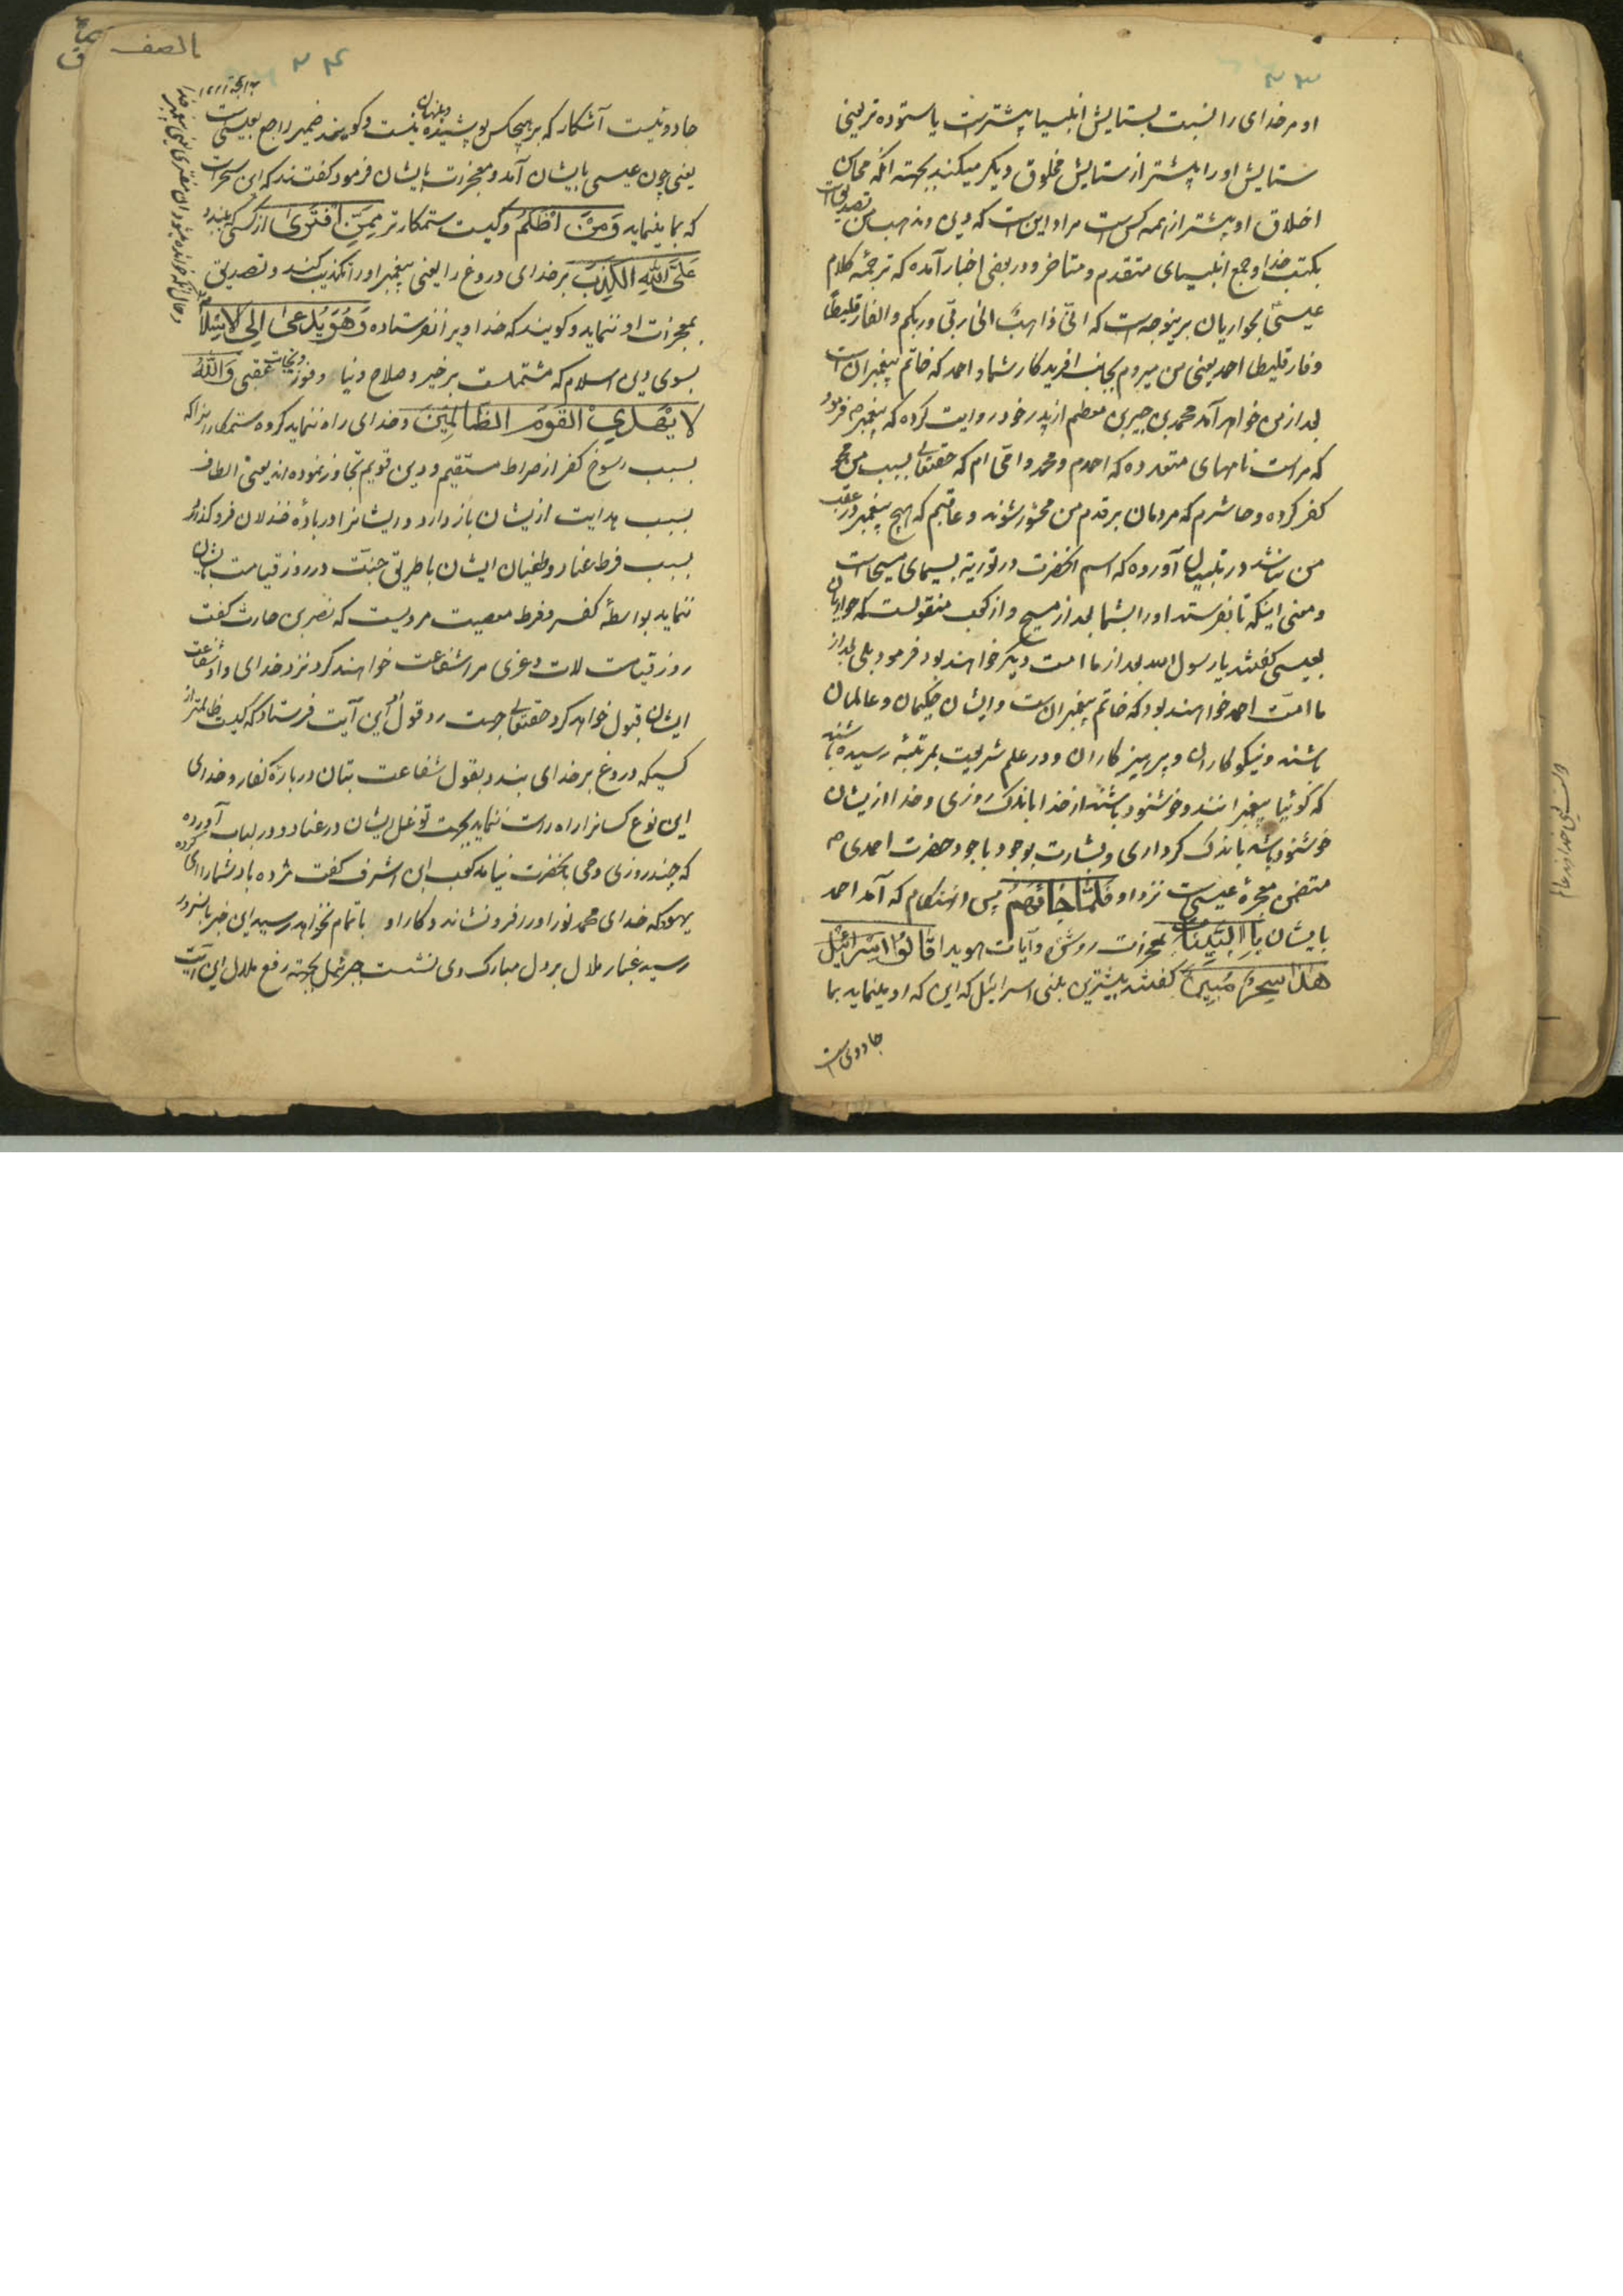 ۲۳
او مر خدای را نسبت بستایش انبیا بیشترست یا ستوده ترینی
ستایش او را بیشتر از ستایش مخلوق دیگر میکنند بجهته آنکه محاسن
اخلاق او بیشتر از همه کس است مراد این است که دین و مذهب من تصدیق است
بکتب خدا و جمع انبیای متقدم و متاخر و در بعضی اخبار آمده که ترجمهٔ کلام
عیسی بحواریان برینوجه است که انی ذاهب الی ربی و ربکم و الفارقلیطا
و فارقلیطا احمد یعنی من میروم بجانب افریدکار شما و احمد که خاتم پیغمبران است
بعد از من خواهد آمد محمد بن جبیر بن مطعم از پدر خود روایت کرده که پیغمبر ص فرمود
که مراست نامهای متعدده که احمدم و محمد و ماحی ام که حقتعالی بسبب من محو
کفر کرده و حاشرم که مردمان بر قدم من محشور شوند و عاقبم که هیچ پیغمبر در عقب
من نباشد در تبیان آورده که اسم انحضرت در توریة بسیمای مسیحاست
و معنی اینکه تا بفرستد او را بشما بعد از مسیح و از کعب منقولست که حواریان
بعیسی گفتند یا رسول الله بعد از ما امت دیگر خواهند بود فرمود بلی بعد از
ما امت احمد خواهند بود که خاتم پیغمبرانست و ایشان حکیمان و عالمان
باشند و نیکوکاران و پرهیزکاران و در علم شریعت بمرتبهٔ رسیده باشند
که گوئیا پیغمبرانند و خوشنود باشند از خدا باندک روزی و خدا از ایشان
خوشنود باشد باندک کرداری و بشارت بوجود باجود حضرت احمدی ص
متضمن معجزهٔ عیسی است نزد او فَلَمَّا جَائَهُمْ پس در آن هنگام که آمد احمد
بایشان بِالْبَيِّنَاتِ بمعجزات روشن و آیات هویدا قَالُوا
هٰذَا سِحْرٌ مُبِينٌ گفتند بیشترین بنی اسرائیل که این که او مینماید بما
جادوی است
۲۴
الصف
جادوئیست آشکار که بر هیچکس پوشیده و پنهان نیست و گویند ضمیر راجع بعیسی است
یعنی چون عیسی بایشان آمد و معجزات بایشان فرمود گفتند که این سحرست
که بما مینماید وَمَنْ أَظْلَمُ و کیست ستمکارتر مِمَّنِ افْتَرَىٰ از کسی که بندد
عَلَى اللَّهِ الْكَذِبَ بر خدای دروغ را یعنی پیغمبر او را تکذیب کند و تصدیق
بمعجزات او ننماید و گویند که خدا ویرا نفرستاده وَهُوَ يُدْعَىٰ إِلَى الْإِسْلَامِ
بسوی دین اسلام که مشتملست بر خیر و صلاح دنیا و فوز و نجات عقبی وَاللَّهُ
لَا يَهْدِي الْقَوْمَ الظَّالِمِينَ و خدای راه ننماید گروه ستمکار را زیراکه
بسبب رسوخ کفر از صراط مستقیم و دین قویم تجاوز نموده اند یعنی الطاف
بسبب هدایت ازیشان باز دارد و ریشانرا در بادهٔ خذلان فرو گذارد
بسبب فرط عناد و طغیان ایشان یا طریق جنت در روز قیامت بایشان
ننماید بواسطهٔ کفر و فرط معصیت مرویست که نضر بن حارث گفت
روز قیامت لات و عزی مرا شفاعت خواهند کرد نزد خدای و او شفاعت
ایشان قبول خواهد کرد حقتعالی جهت رد قول او این آیت فرستاد که کیست ظالمتر از
کسیکه دروغ بر خدای بندد بقول شفاعت بتان در بارهٔ کفار و خدای
این نوع کسانرا راه راست ننماید بجهت توغل ایشان در عناد و در لباب آورده
که چند روزی وحی بانحضرت نیامد کعب ابن اشرف گفت مژده باد شما را ای گروه
یهود که خدای محمد نور او را فرو نشاند و کار او باتمام نخواهد رسید این خبر بانسرور
رسید غبار ملال بر دل مبارک وی نشست جبرئیل بجهته رفع ملال این آیت